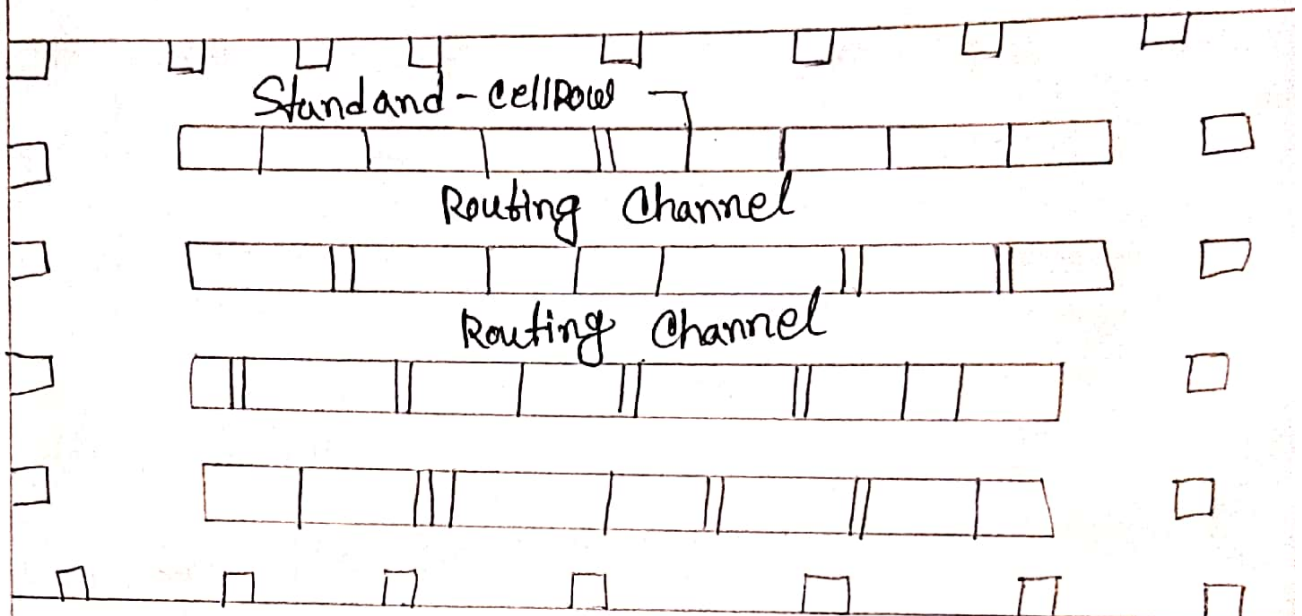 Standand-cellRow
Routing Channel
Routing Channel